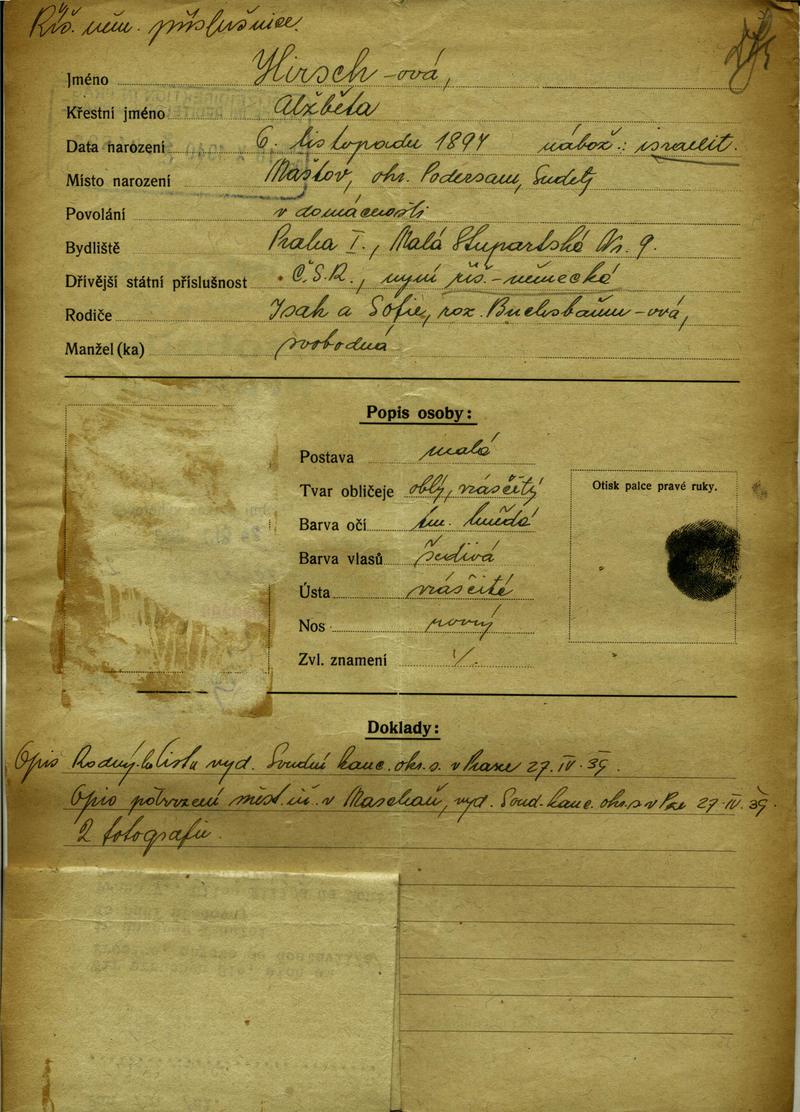 Říš. něm. příslušnice.
Jméno Hirsch-ová,
Křestní jméno Alžběta
Data narození 6. listopadu 1894 nábož.: israelit.
Místo narození Maštov, okr. Podersam, Sudety
Povolání v domácnosti
Bydliště Praha I., Malá Štupartská Nr. 9.
Dřívější státní příslušnost Č.S.R., nyní říš.-německá
Rodiče Isak a Sofie, roz. Buchsbaum-ová,
Manžel (ka) svobodná
Popis osoby:
Postava malá
Tvar obličeje oblý, vrásčitý
Otisk palce pravé ruky.
Barva očí tm. hnědé
Barva vlasů šedivá
Ústa vrásčité
Nos rovný
Zvl. znamení /.
Doklady:
Opis Rodného listu vyd. Soudní kanc. okr. s. v Praze 27. IV. 39.
Opis potvrzení měst. úř. v Maschau, vyd. Soud. kanc. okr. s. v Pze 27. IV. 39.
2 fotografie.